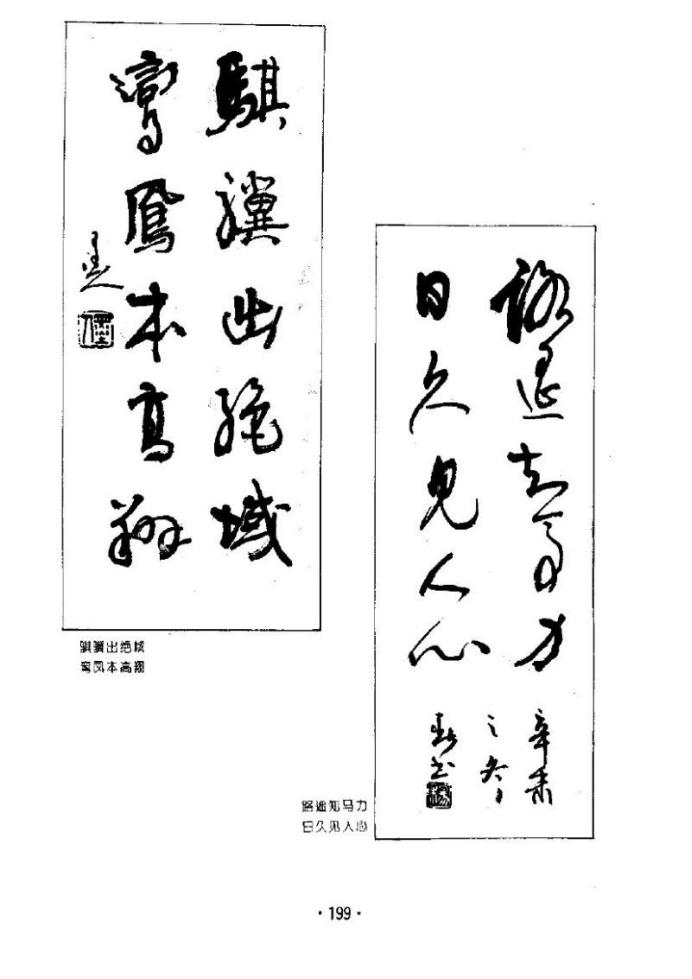 騏驥出絕域
鸞鳳本高翔
骐骥出绝域
鸾凤本高翔
路遥知馬力
日久見人心
辛未
之冬
路遥知马力
日久见人心
·199·